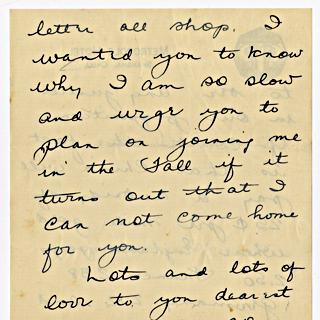 letter all shop. I
wanted you to know
why I am so slow
and urge you to
plan on joining me
in the Fall if it
turns out that I
can not come home
for you.
Lots and lots of
love to you dearest